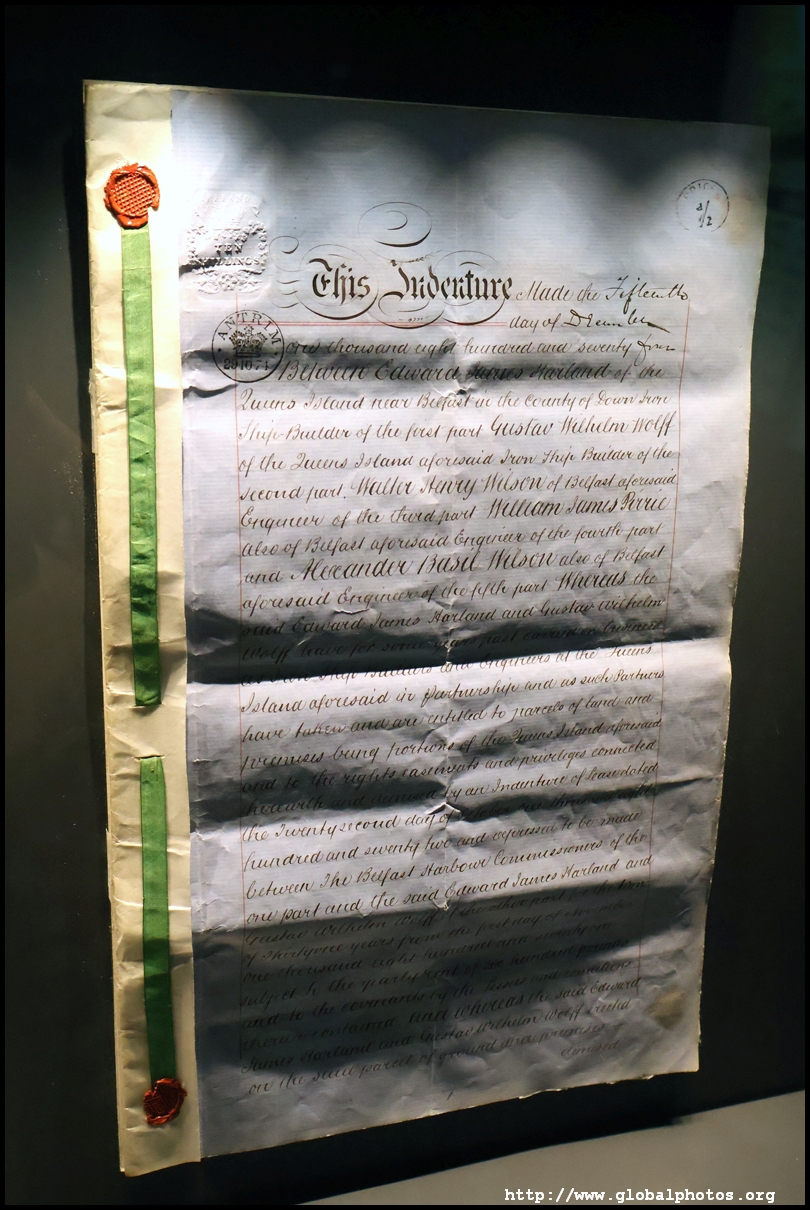 TEN
SHILLINGS
ORIGINAL
2/2
This Indenture Made the Fifteenth
day of December
ANTRIM
29.10.74
one thousand eight hundred and seventy four
Between Edward James Harland of the
Queens Island near Belfast in the County of Down Iron
Ship Builder of the first part Gustav Wilhelm Wolff
of the Queens Island aforesaid Iron Ship Builder of the
second part. Walter Henry Wilson of Belfast aforesaid
Engineer of the third part William James Pirrie
also of Belfast aforesaid Engineer of the fourth part
and Alexander Basil Wilson also of Belfast
aforesaid Engineer of the fifth part Whereas the
said Edward James Harland and Gustav Wilhelm
Wolff have for some years past carried on business
as Iron Ship Builders and Engineers at the Queens
Island aforesaid in partnership and as such Partners
have taken and are entitled to parcels of land and
premises being portions of the Queens Island aforesaid
and to the rights easements and privileges connected
therewith and demised by an Indenture of Lease dated
the Twentysecond day of October one thousand eight
hundred and seventy two and expressed to be made
between The Belfast Harbour Commissioners of the
one part and the said Edward James Harland and
Gustav Wilhelm Wolff of the other part for the term
of Thirtyone years from the first day of November
one thousand eight hundred and seventy
subject to the yearly rent of hundred pounds
and to the covenants by the lessees and conditions
therein contained and whereas the said Edward
James Harland and Gustav Wilhelm Wolff erected
on the said parcel of ground and premises
demised
http://www.globalphotos.org